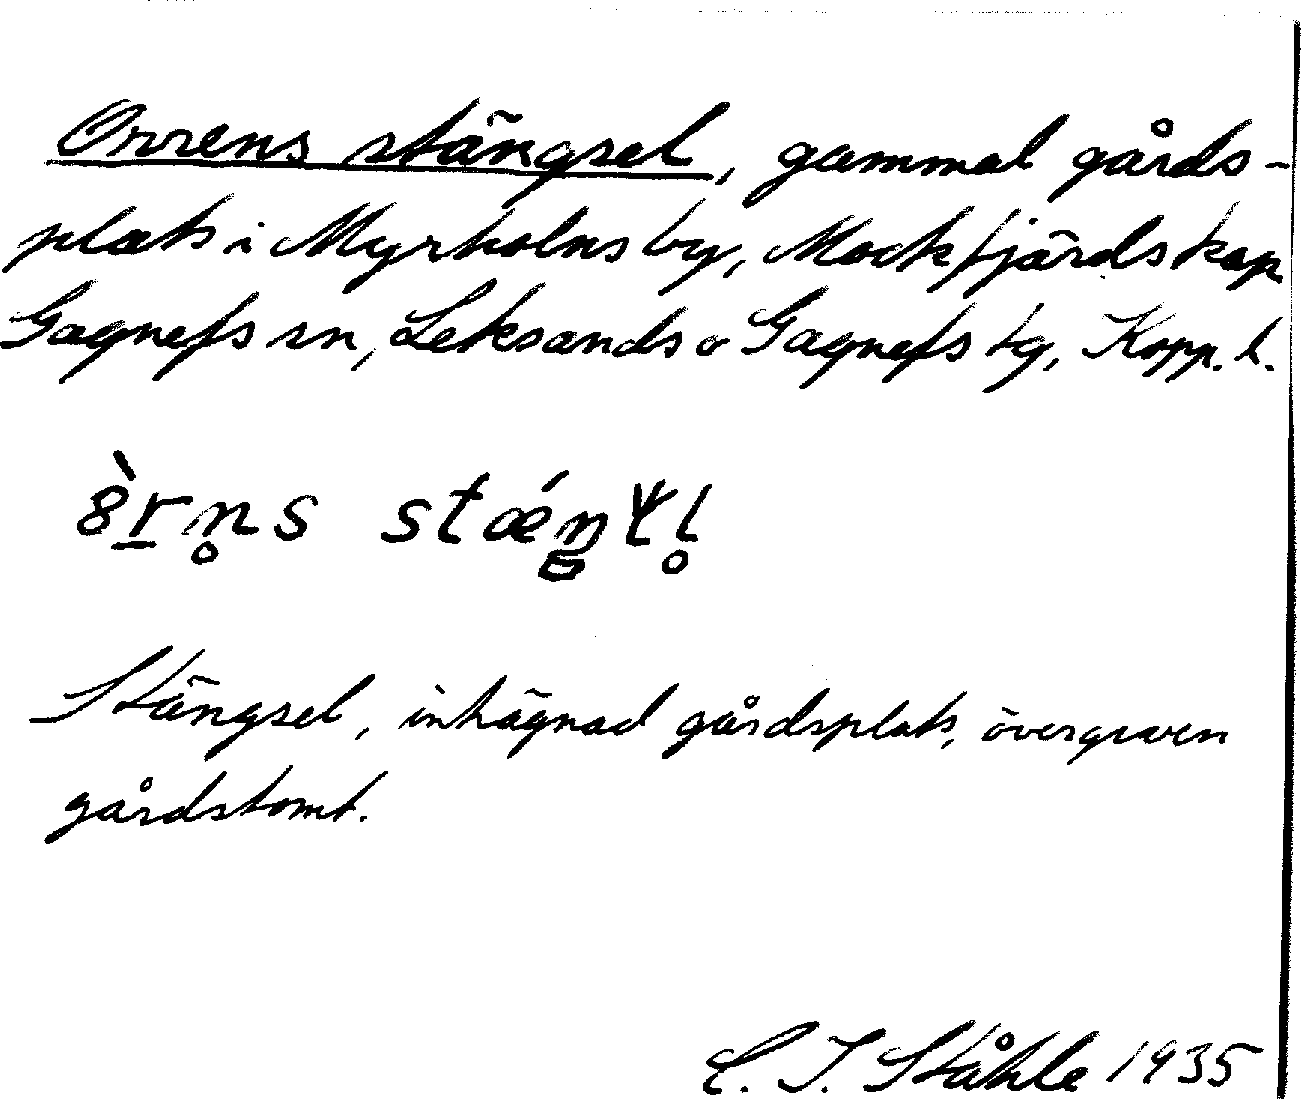 Orrens stängsel, gammal gårds-
plats i Myrholns by, Mockfjärds kap
Gagnefs sn, Leksands o Gagnefs tg, Kopp. l.
Stängsel, inhägnad gårdsplats, övergiven
gårdstomt.
C. I. Ståhle 1935